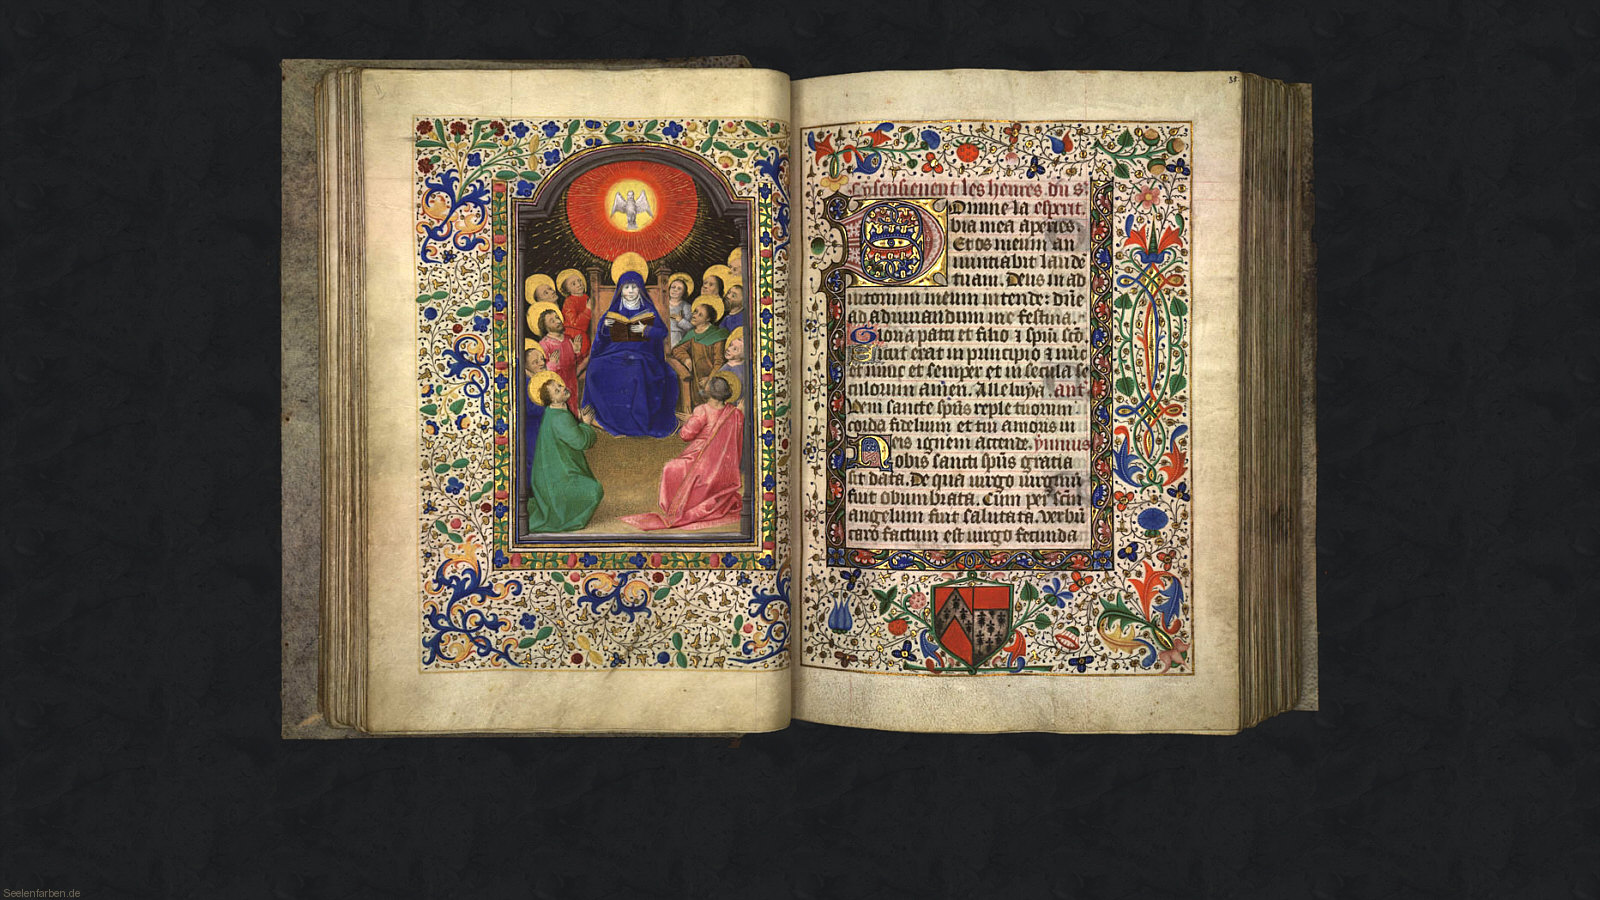 35
Cy sensieuent les heures du s.
Domine la esperit.
bia mea aperies:
Et os meum an
nunciabit laude
tuam. Deus in ad
iutorium meum intende: dne
ad adiuuandum me festina.
Gloria patri et filio ⁊ spui sco.
Sicut erat in principio ⁊ nuc
et nunc et semper et in secula se
culorum amen. Alleluya. ant.
Veni sancte spus reple tuorum
corda fidelium et tui amoris in
eis ignem accende. ymnus
Nobis sancti spus gracia
sit data. De qua uirgo uirginu
fuit obumbrata. Cum per scm
angelum fuit salutata. verbu
caro factum est uirgo fecunda
Seelenfarben.de